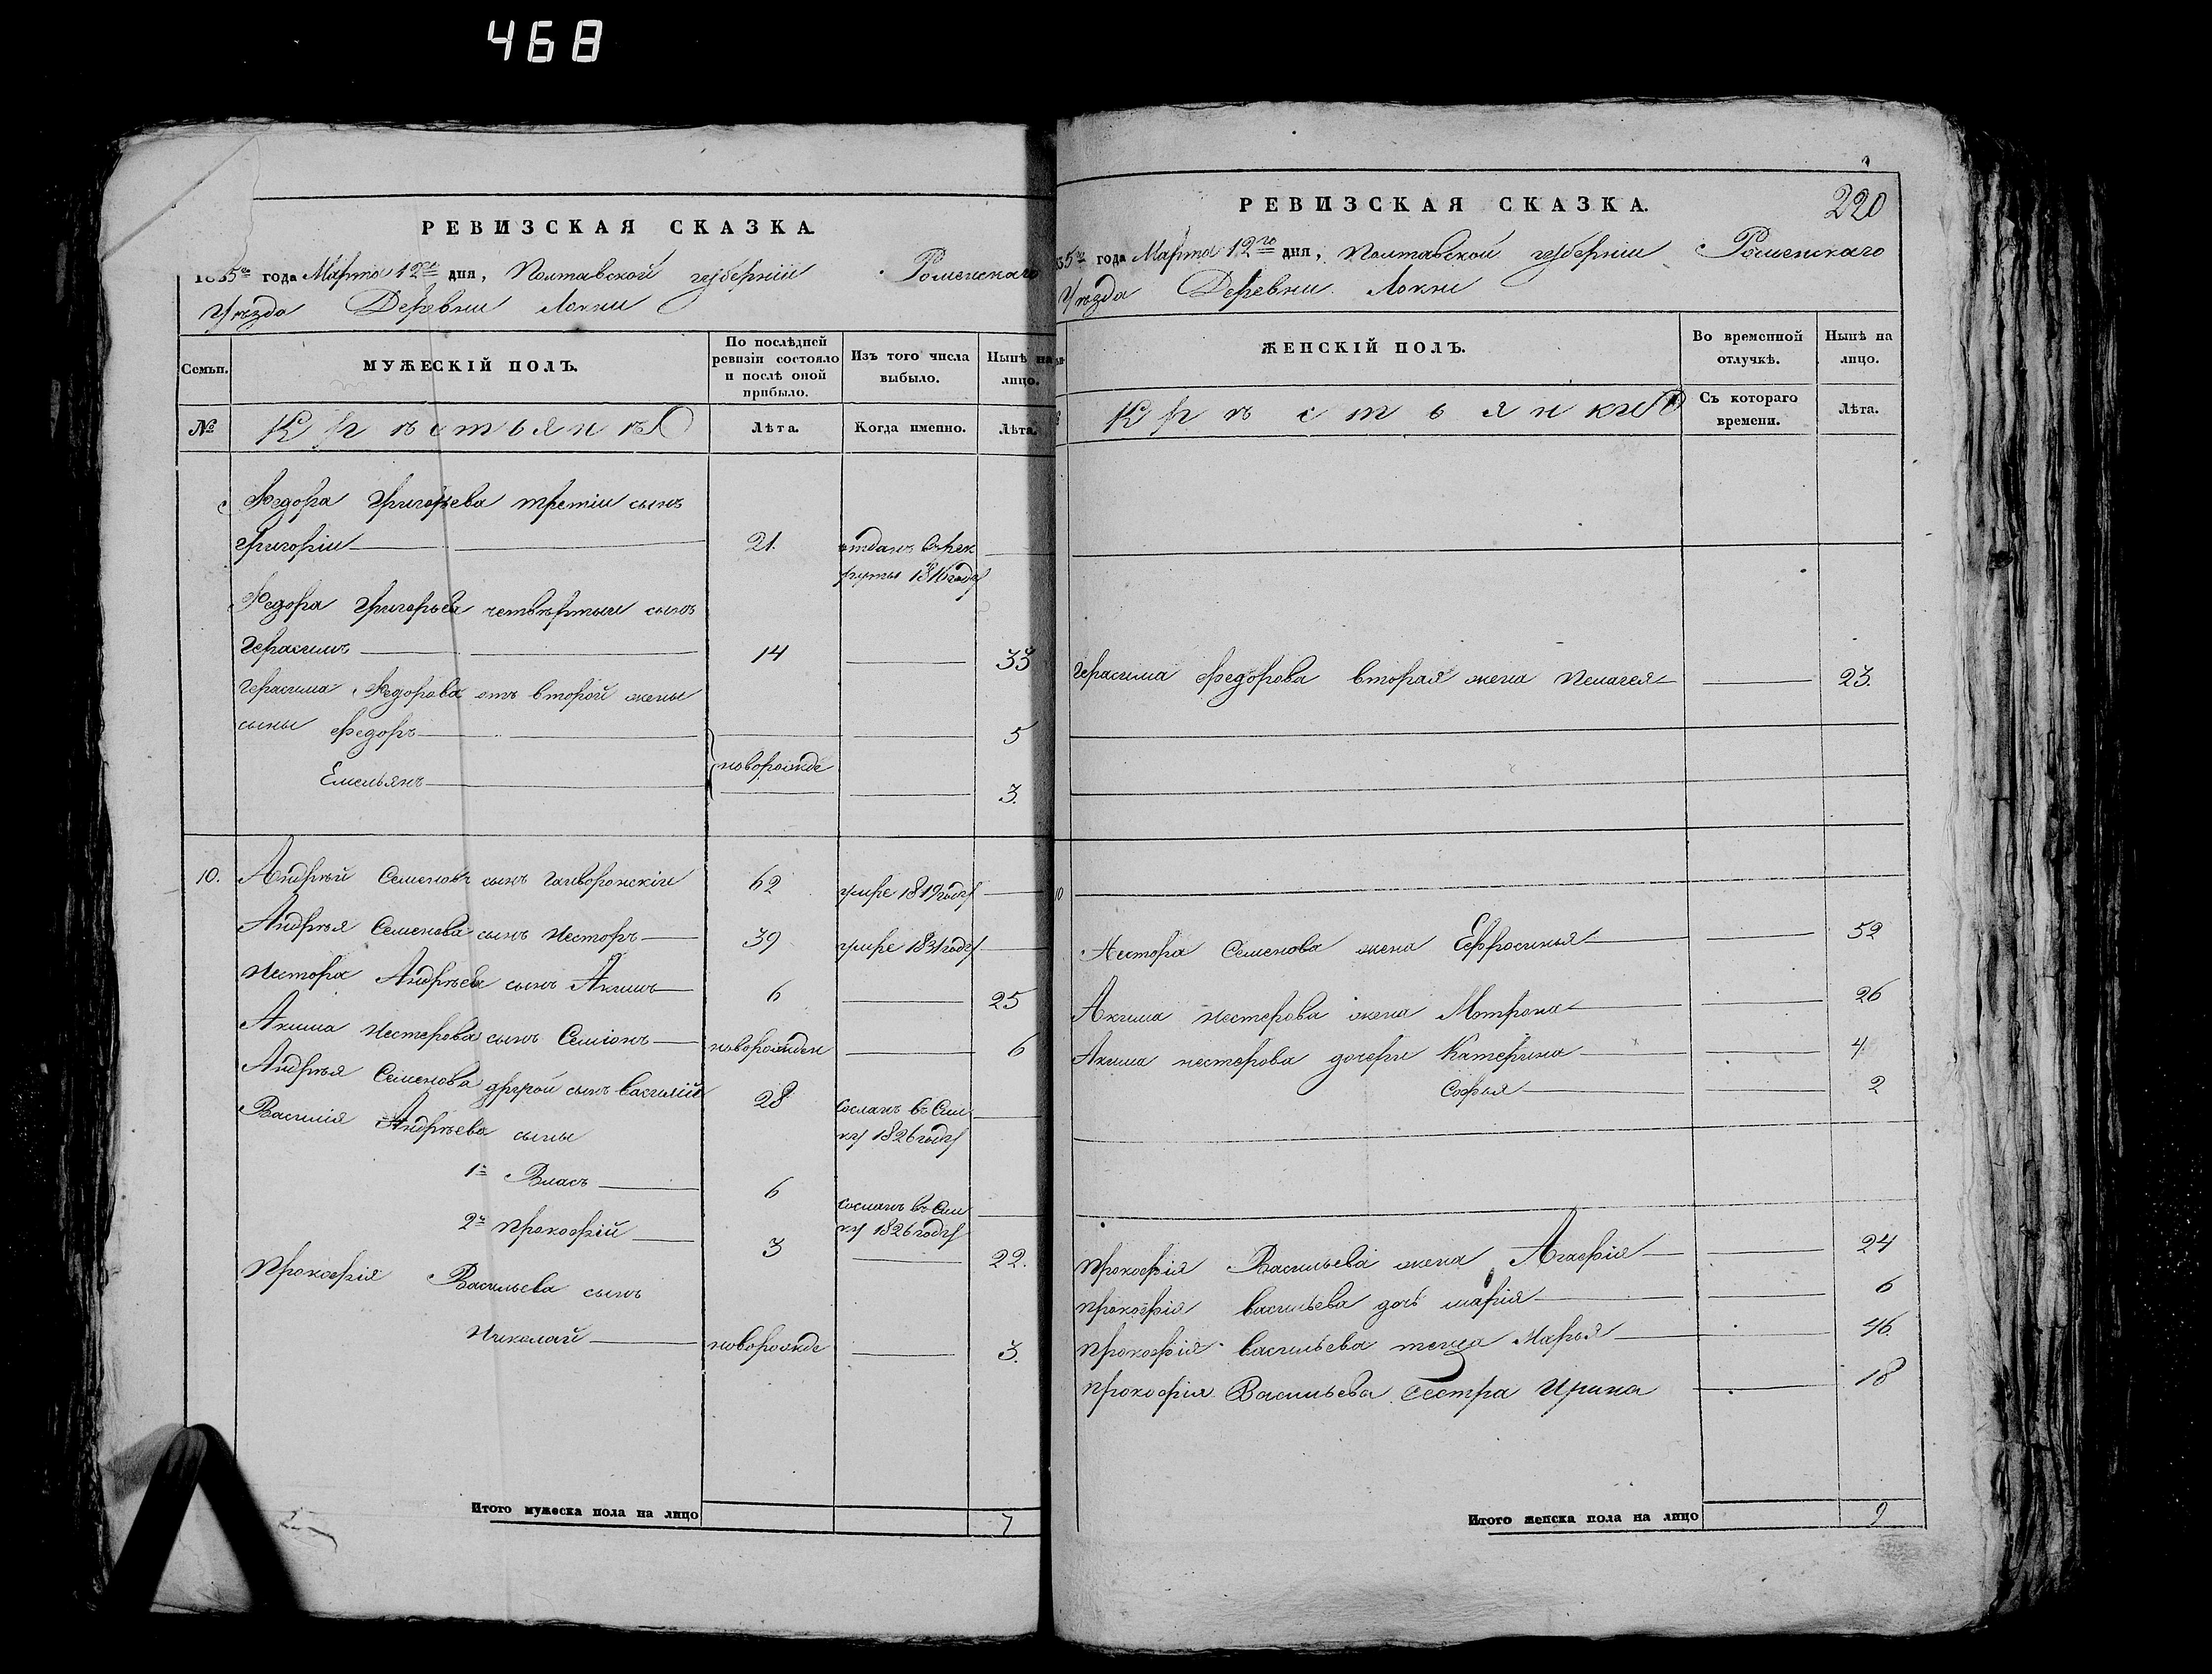 468
РЕВИЗСКАЯ СКАЗКА.
1835го года Марта 12го дня, Полтавской губерніи Роменскаго
Уѣзда Деревни Локни
Семьи.
МУЖЕСКІЙ ПОЛЪ.
По послѣдней ревизіи состояло и послѣ оной прибыло.
Изъ того числа выбыло.
Нынѣ на лицо.
№
Крѣстьянѣ
Лѣта.
Когда именно.
Лѣта.
Федора Григорьева третіи сынъ
Григоріи 21. отданъ в рек
руты 1816 году
Федора Григорьева четвѣртыи сынъ
Герасимъ 14 33
Герасима Федорова отъ второй жены
сыны Федоръ 5
новорожде
Емельянъ 3.
10. Андрѣй Семеновъ сынъ Гайворонскіи 62 умре 1819 году
Андрѣя Семенова сынъ Несторъ 39 умре 1831 году
Нестора Андрѣева сынъ Акимъ 6 25
Акима Нестерова сынъ Семіонъ новорожден 6
Андрѣя Семенова другой сынъ Василій 28 сосланъ в Сил
ку 1826 году
Василія Андрѣева сыны
1й Власъ 6 сосланъ в Сил
ку 1826 году
2й Прокофій 3 22.
Прокофія Васильева сынъ
Николай новорожде 3.
Итого мужеска пола на лицо 7
220
РЕВИЗСКАЯ СКАЗКА.
35го года Марта 12го дня, Полтавской губерніи Роменскаго
Уѣзда Деревни Локни
ЖЕНСКІЙ ПОЛЪ.
Во временной отлучкѣ.
Нынѣ на лицо.
Крѣстьянки
Съ котораго времени.
Лѣта.
Герасима Федорова вторая жена Пелагея 23.
10
Нестора Семенова жена Ефросинья 52
Акима Нестерова жена Мотрона 26
Акима нестерова дочери Катерина 4
Софья 2
Прокофія Васильева жена Агафія 24
Прокофія Васильева дочь марія 6
Прокофія Васильева теща Марья 46.
Прокофія Васильева Сестра Ирина 18
Итого женска пола на лицо 9